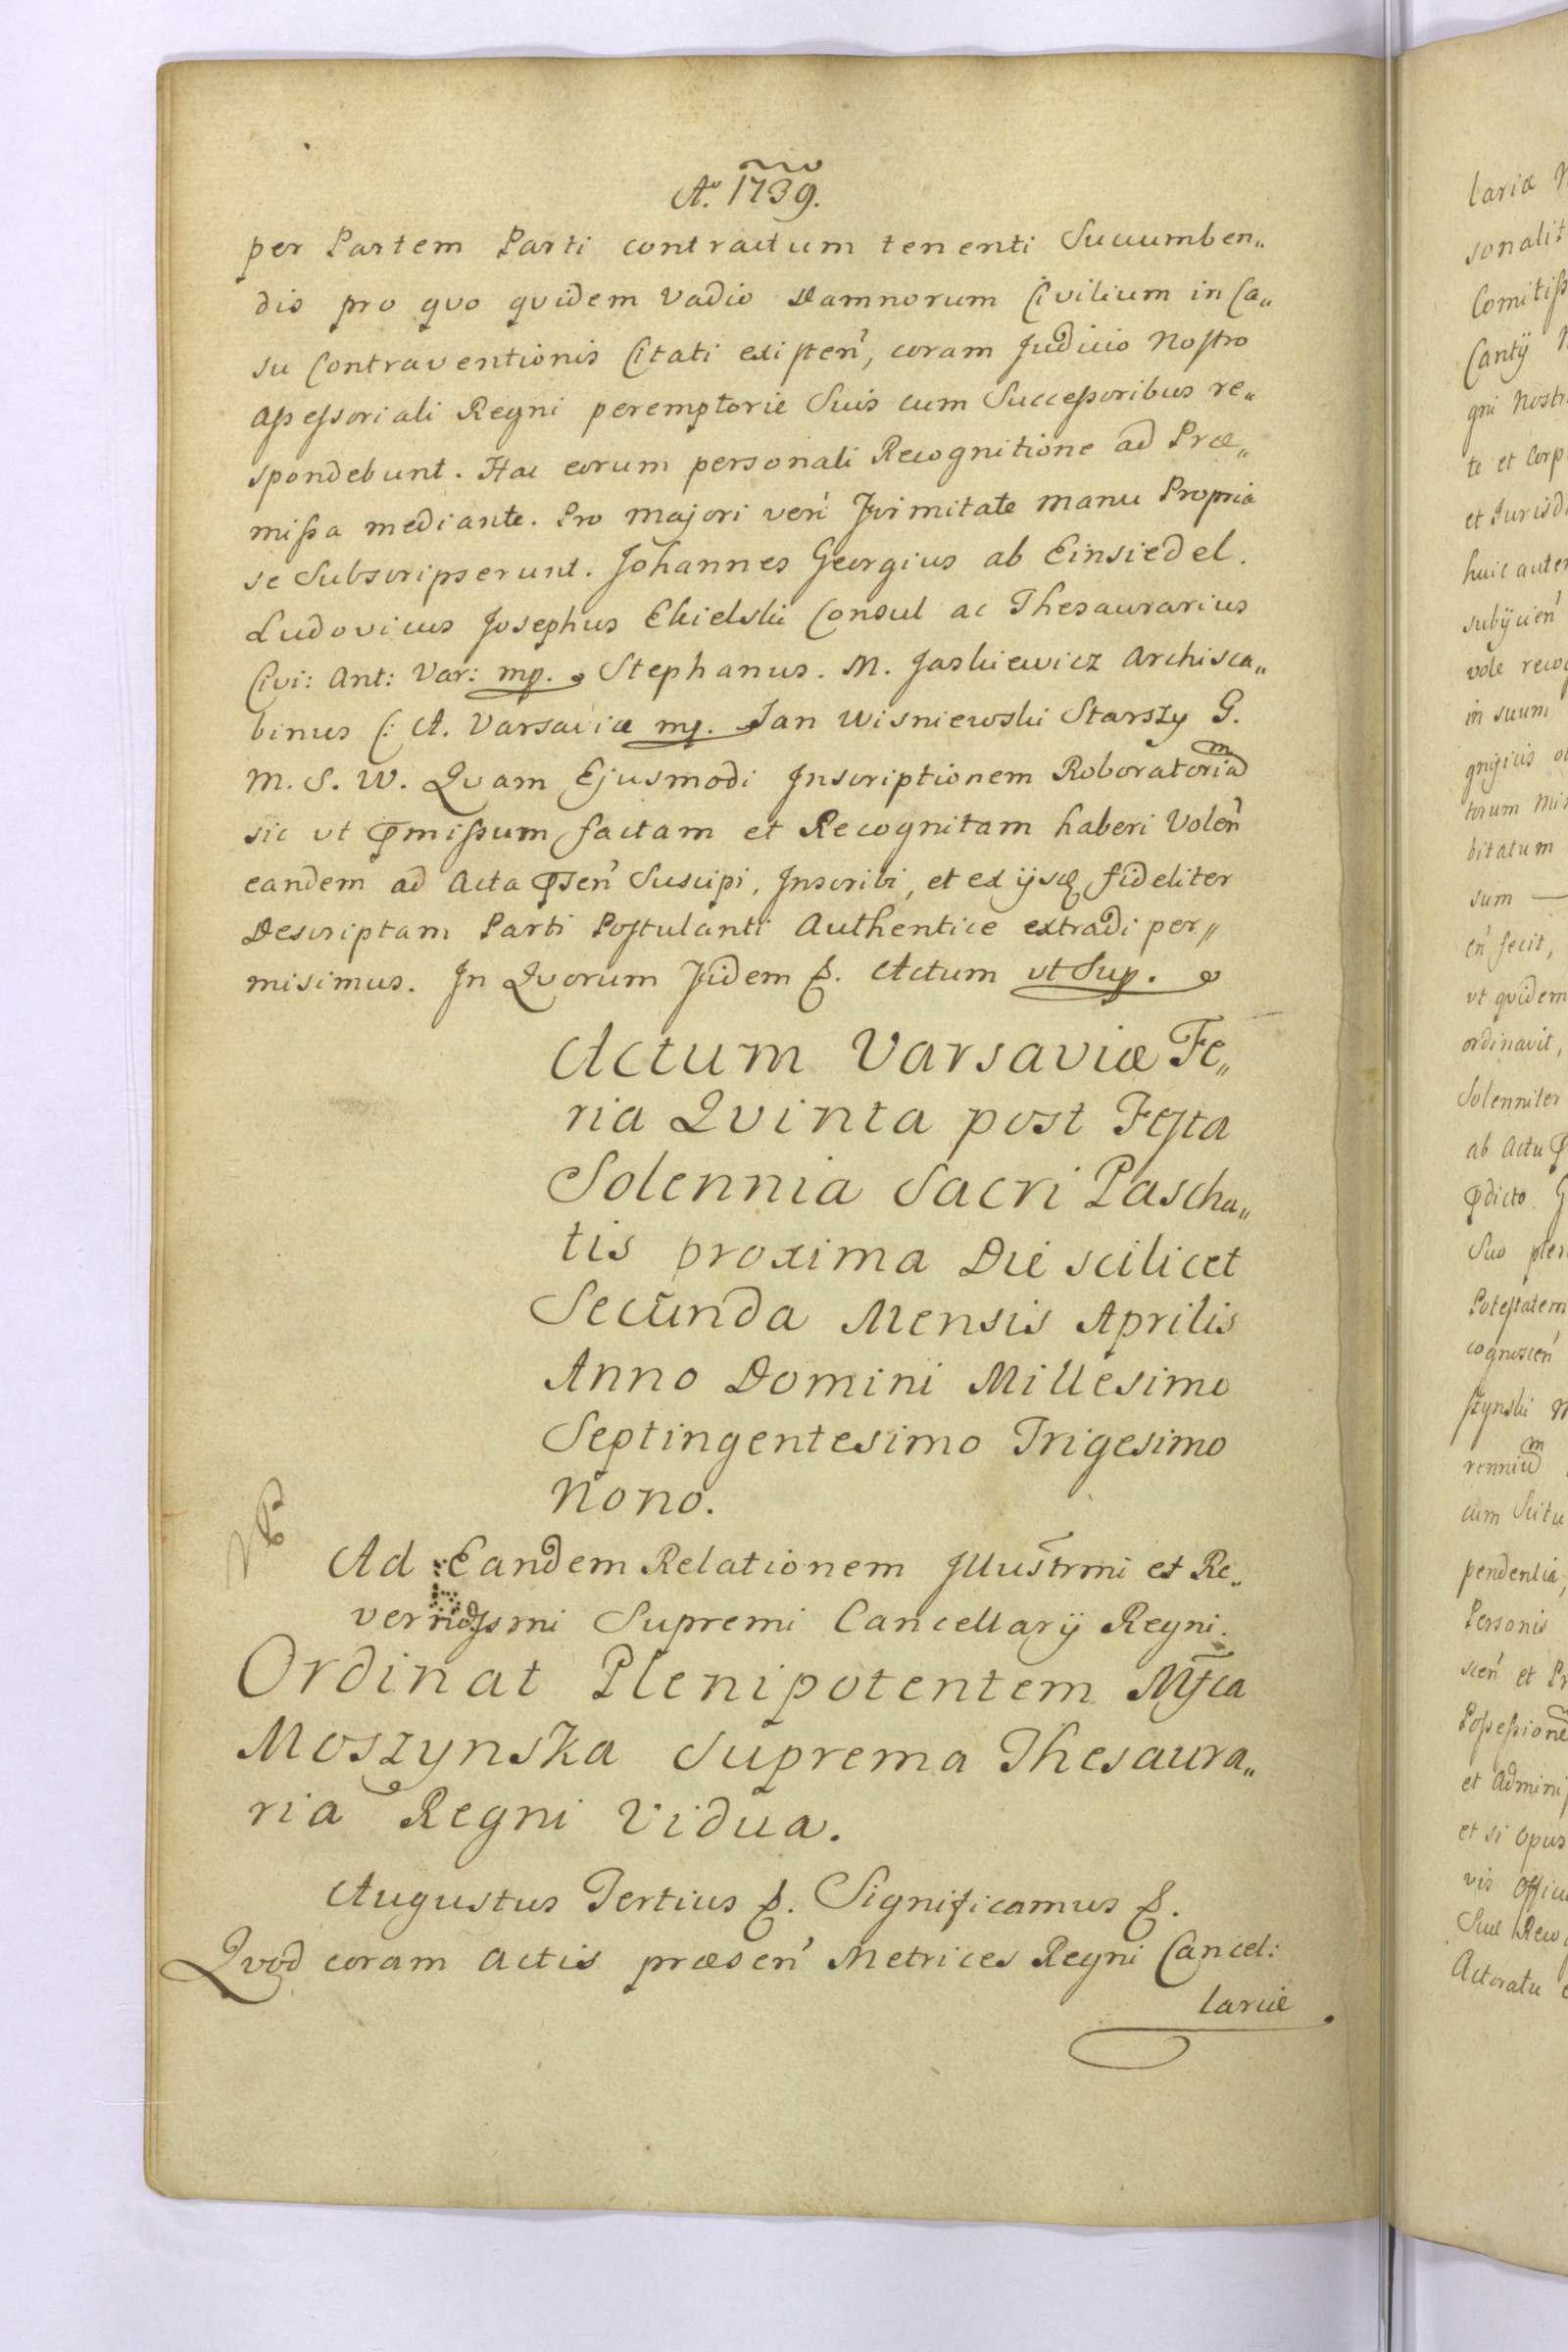 Aº. 1739.
per Partem Parti contractum tenenti Succumben„
dis pro quo quidem Vadio Damnorum Civilium in Ca„
su Contraventionis Citati existen̕, coram Judicio Nostro
Assessoriali Regni peremptorie Suis cum Successoribus re„
spondebunt. Hac eorum personali Recognitione ad Præ„
missa mediante. Pro Majori veri Firmitate manu Propria
se Subscripserunt. Johannes Georgius ab Einsiedel.
Ludovicus Josephus Ekielski Consul ac Thesaurarius
Civi: Ant: Var: mp. Stephanus. M. Jaskiewicz Archisca„
binus C: A. Varsaviæ mp. Jan Wisniewski Starszy G.
M. S. W. Quam Ejusmodi Inscriptionem Roboratoriam
sic ut p̃missum factam et Recognitam haberi Volen̕
eandem ad Acta p̃sen̕ Suscipi, Inscribi, et ex ijsq̃ fideliter
Descriptam Parti Postulanti Authentice extradi per„
misimus. In Quorum Fidem &. Actum ut Sup.
Actum Varsaviæ Fe„
ria Quinta post Festa
Solennia Sacri Pascha„
tis proxima Die scilicet
Secunda Mensis Aprilis
Anno Domini Millesimo
Septingentesimo Trigesimo
Nono.
Ad Eandem Relationem Illustr̃mi et Re„
verndssmi Supremi Cancellarij Regni.
Ordinat Plenipotentem Mf̃ca
Moszynska Suprema Thesaura„
ria Regni Vidua.
Augustus Tertius &. Significamus &.
Quod coram Actis præsen̕ Metrices Regni Cancel:
lariæ
lariæ
sonalit
Comitiss
Cantij
gni Nostr
te et Corp
et Jurisd
huic autem
subijcien̕
vole reco
in suum
torum
bitatum
sum —
en̕ fecit,
ut quidem
ordinavit,
Solenniter
ab Actu
p̃dicto. G
Suo plen
Potestatem
cognoscen̕
szynski
renniuͫ
cum Scitu
pendentia,
Personis
scen̕ et Pr
Possessione
et Admini
et si opus
vis Officio
Suæ Reco
Actoratu